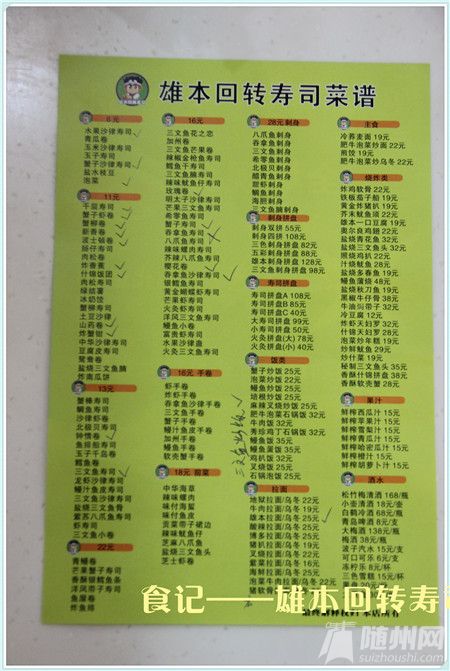 雄本回转寿司菜谱
6元
水果沙律寿司
青瓜卷
玉米沙律寿司
玉子寿司
蟹子沙律寿司
盐水枝豆
泡菜
11元
千层寿司
蟹子虾卷
蟹柳卷
新香卷
波士顿卷
肠仔寿司
肉松卷
炸香蕉
什锦饭团
肉松寿司
绿结薯
冰奶饺
蟹柳寿司
土豆沙律
山药卷
炸蟹钳
中华沙律寿司
豆腐皮寿司
鸳鸯卷
盐烧三文鱼腩
炸南瓜饼
13元
蟹棒寿司
鲷鱼寿司
沙律虾卷
北极贝寿司
钟情卷
鱼排船寿司
玉子千岛卷
鳕鱼卷
三文鱼寿司
龙虾沙律寿司
鳗汁鱼皮寿司
三文鱼沙律寿司
盐烧三文鱼骨
紫苏八爪鱼寿司
虾寿司
三文鱼小卷
22元
青鳗卷
芒果蟹子寿司
香酥银鳕鱼条
洋凤带子寿司
鱼屋卷
炸鱼排
16元
三文鱼花之恋
加州卷
三文鱼芒果卷
辣椒金枪鱼寿司
鳕鱼干寿司
三文鱼腩寿司
辣味魷鱼仔寿司
玫瑰卷
明太子沙律寿司
芒果三文鱼寿司
希零鱼寿司
蟹子寿司
吞拿鱼寿司
八爪鱼寿司
辣味螺肉寿司
芥辣八爪鱼寿司
樱花卷
吞拿鱼沙律寿司
银鳕鱼寿司
黄金蝴蝶虾寿司
芒果虾寿司
火炙虾寿司
洋凤三文鱼寿司
鳗鱼小卷
富贵虾寿司
水果沙律盏
火炙三文鱼寿司
16元 手卷
虾手卷
炸虾手卷
吞拿鱼沙律手卷
三文鱼手卷
蟹子手卷
鳗汁鱼皮手卷
加州手卷
鳗鱼手卷
软壳蟹手卷
18元 前菜
中华海草
辣味螺肉
味付海蜇
味付鱼皮
贡菜带子裙边
辣味魷鱼仔
芝麻八爪鱼
盐烧三文鱼头
芝士虾卷
28元 刺身
八爪鱼刺身
吞拿鱼刺身
三文鱼刺身
希零鱼刺身
北极贝刺身
醋青鱼刺身
甜虾刺身
鲷鱼刺身
海胆刺身
三文鱼腩刺身
刺身拼盘
刺身双拼 55元
刺身四拼 108元
三色刺身拼盘 82元
五彩刺身拼盘 88元
雄本刺身拼盘 128元
三文鱼刺身拼盘 98元
寿司拼盘
寿司拼盘A 108元
寿司拼盘B 85元
寿司拼盘C 40元
大号寿司拼盘 99元
小寿司拼盘 50元
火炙拼盘(大) 79元
火炙拼盘(小) 40元
饭类
蟹子炒饭 25元
泡菜炒饭 22元
三文鱼炒饭 25元
培根炒饭 25元
麻辣叉烧炒饭 25元
肥牛泡菜石锅饭 32元
牛肉饭 32元
秀珍鸡丁石锅饭 32元
鳗鱼饭 35元
鳗鱼蛋饭 35元
鸡扒饭 32元
叉烧饭 25元
石锅泡饭 25元
三文鱼炒饭
拉面
地狱拉面/乌冬 22元
牛肉拉面/乌冬 26元
雄本拉面/乌冬 25元
酸辣拉面/乌冬 22元
博多拉面/乌冬 25元
猪扒拉面/乌冬 19元
叉烧拉面/乌冬 22元
紫菜拉面/乌冬 16元
海鲜拉面/乌冬 25元
泡菜拉面/乌冬 22元
泡菜牛肉拉面/乌冬 22元
猪软骨拉面/乌冬
主食
冷荞麦面 19元
肥牛泡菜炒面 22元
煎饺 19元
肥牛泡菜炒乌冬 22元
烧炸类
炸鸡软骨 22元
铁板茄子 19元
黄金炸猪扒 19元
芥末魷鱼须 22元
雄本一口豆腐 19元
奥尔良鸡翅 22元
盐烧青花鱼 32元
盐烧三文鱼 32元
照烧鸡扒 22元
汁烧魷鱼 28元
盐烧多春鱼 19元
鳗鱼蒲烧 48元
盐烧秋刀鱼 19元
黑椒牛仔骨 38元
牛油焗带子 32元
冷豆腐 12元
炸虾天妇罗 32元
什锦天妇罗 28元
泡菜炒年糕 19元
炒鲜魷 29元
炒什菜 19元
秘制三文鱼头 38元
香酥什锦拼盘 38元
香酥软壳蟹 28元
果汁
鲜榨西瓜汁 15元
鲜榨苹果汁 15元
鲜榨雪梨汁 15元
鲜榨青瓜汁 15元
鲜榨哈密瓜汁 15元
鲜榨橙汁 15元
鲜榨胡萝卜汁 15元
酒水
松竹梅清酒 168/瓶
小壶清酒 18元/壶
白鹤冷酒 68元/瓶
青岛啤酒 8元/支
大梅酒 138元/瓶
梅酒 38元/瓶
波子汽水 15元/支
可口可乐 6元/支
冻柠乐 8元/杯
三色雪糕 15元/杯
盘 20元
食记——雄本回转寿司
随州网
suizhoushi.com